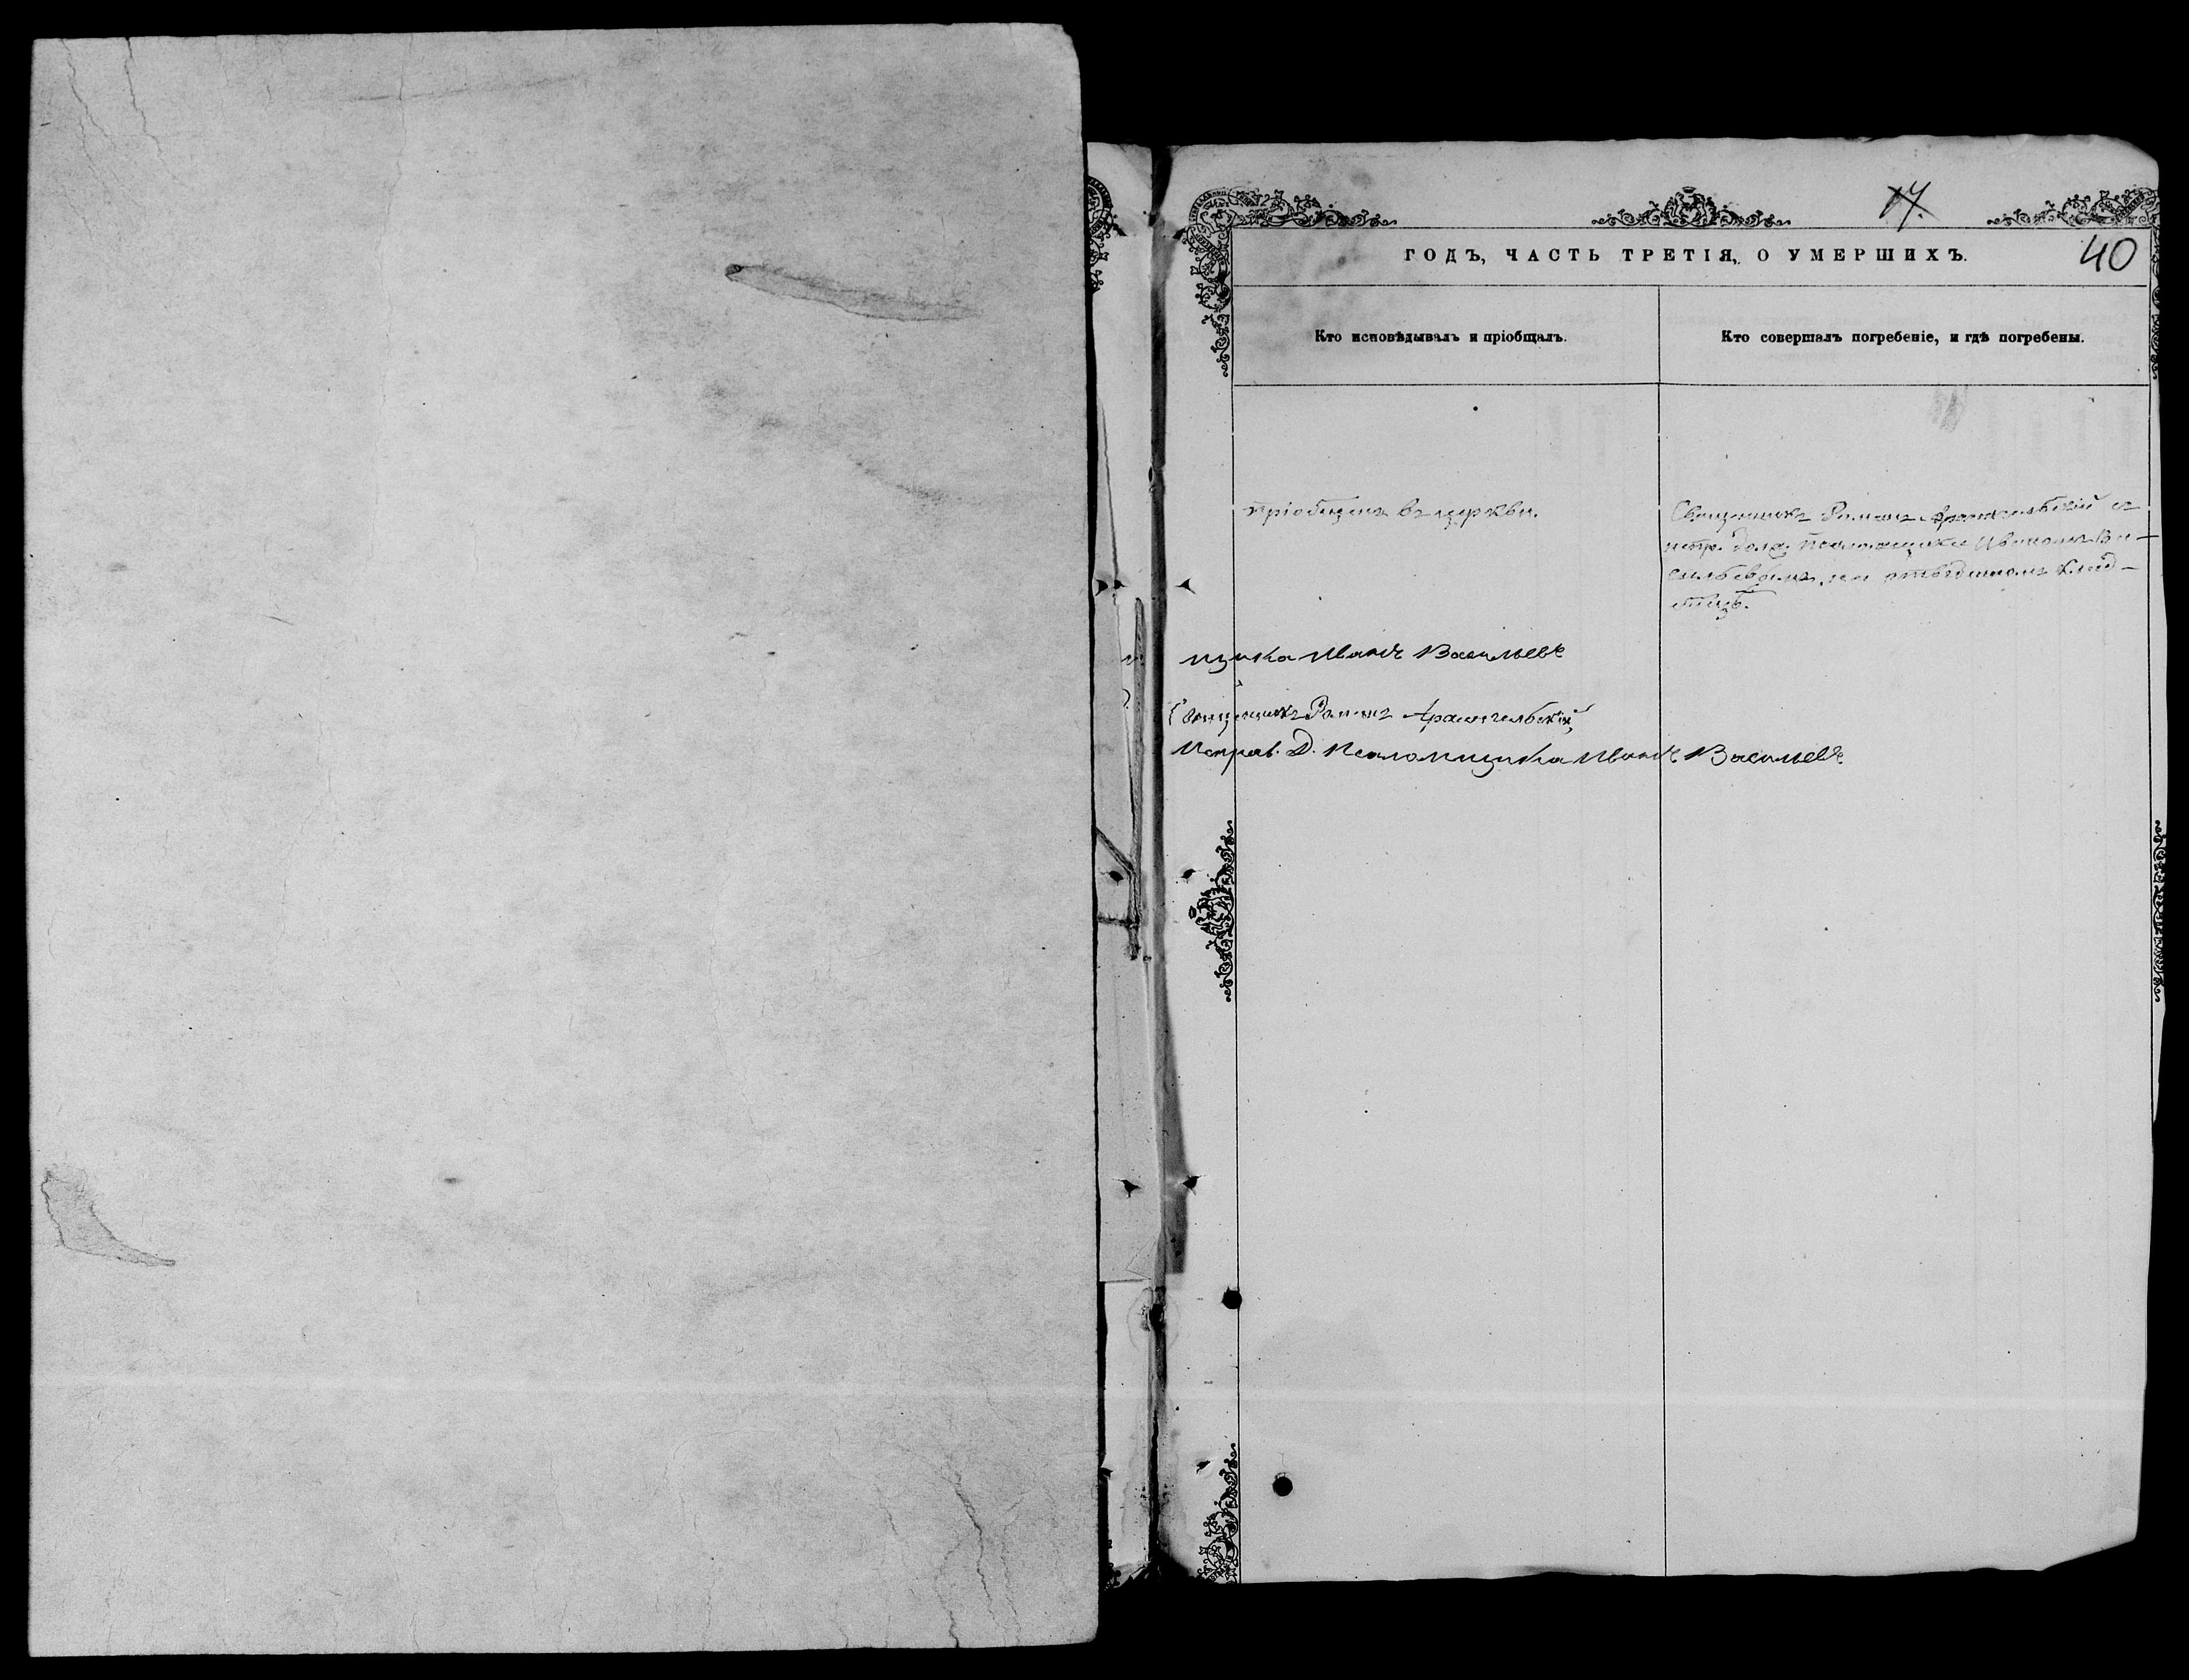 17.
40
ГОДЪ, ЧАСТЬ ТРЕТІЯ, О УМЕРШИХЪ.
Кто исповѣдывалъ и пріобщалъ.
Кто совершалъ погребеніе, и гдѣ погребены.
пріобщенъ въ церкви.
Священникъ Романъ Архангельскій съ
испр. долж. Псаломщика Иваномъ Ва-
сильевымъ, на отведенномъ клад-
бищѣ.
мщика Иванъ Васильевъ
Священникъ Романъ Архангельскій,
Исправ. Д. Псаломщика Иванъ Васильевъ